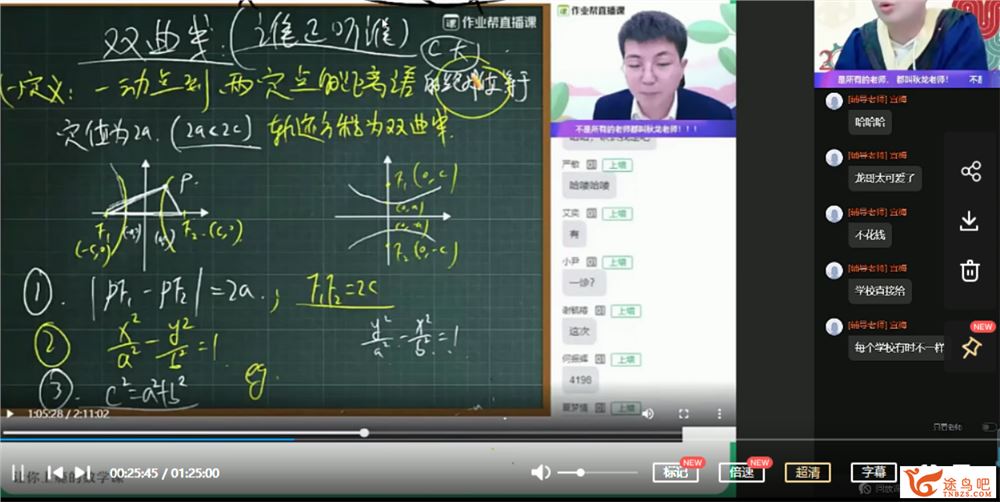 作业帮直播课
双曲线：(谁正听谁)
(大)
(一)定义：一动点到两定点的距离语的绝对值等于
定值为2a. (2a<2c) 轨迹方程为双曲线.
P.
F₁
(-c,0)
(a,0)
F₂ (c,0)
F₁(0,c)
(0,a)
(0,-a)
F₂(0,-c)
①. |PF₁-PF₂|=2a. ; F₁F₂=2c
② x²/a²-y²/b²=1
y²/a²-x²/b²=1
③. c²=a²+b²
eg.
1:05:28 / 2:11:02
作业帮直播课
不是所有的老师都叫秋龙老师！！！
严敏 上墙
哈喽哈喽
艾奕 上墙
有
小尹 上墙
一诊？
上墙
这次
上墙
4196
上墙
是所有的老师，都叫秋龙老师！
[辅导老师] 宜梅
哈哈哈
[辅导老师] 宜梅
龙哥太可爱了
[辅导老师] 宜梅
不花钱
[辅导老师] 宜梅
学校直接给
[辅导老师] 宜梅
每个学校有时不一样
NEW
只看老师
让你上瘾的数学课
00:25:45 / 01:25:00
标记
NEW
倍速
NEW
超清
字幕
途鸟吧
TNBZS.COM